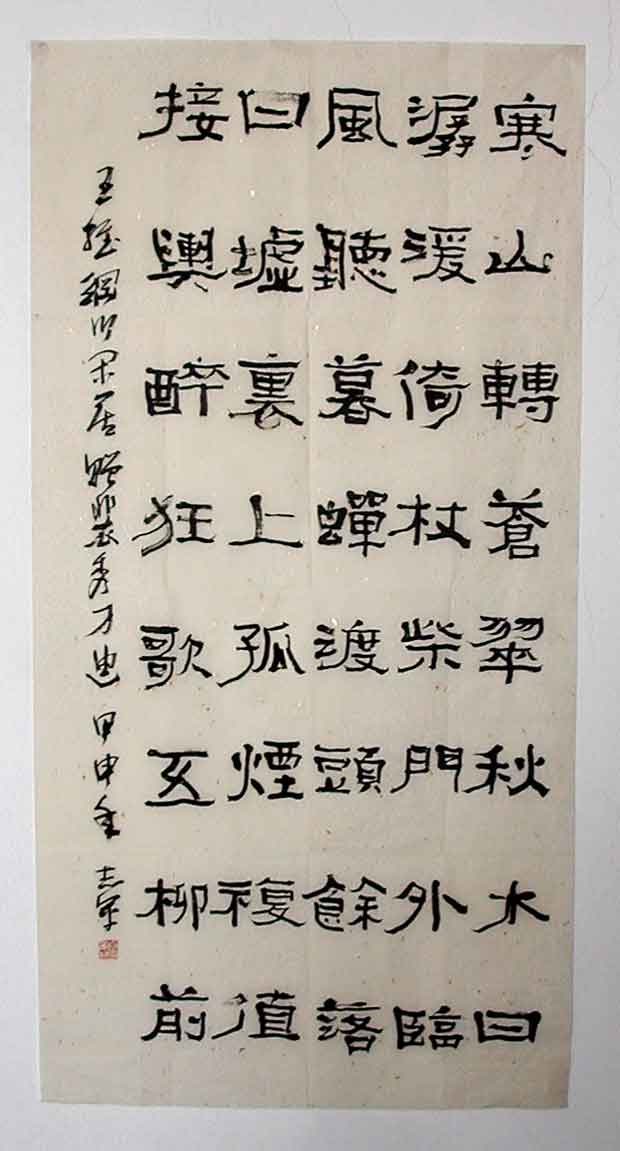 寒山轉蒼翠秋水日
潺湲倚杖柴門外臨
風聽暮蟬渡頭餘落
日墟裏上孤煙複值
接輿醉狂歌五柳前
王維輞川閑居贈裴秀才迪 甲申年 志軍